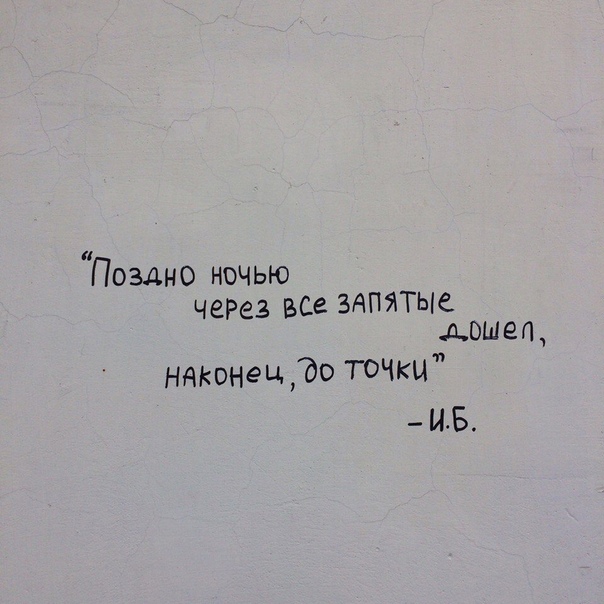 “Поздно ночью
через все запятые
дошел,
наконец, до точки”
– И.Б.